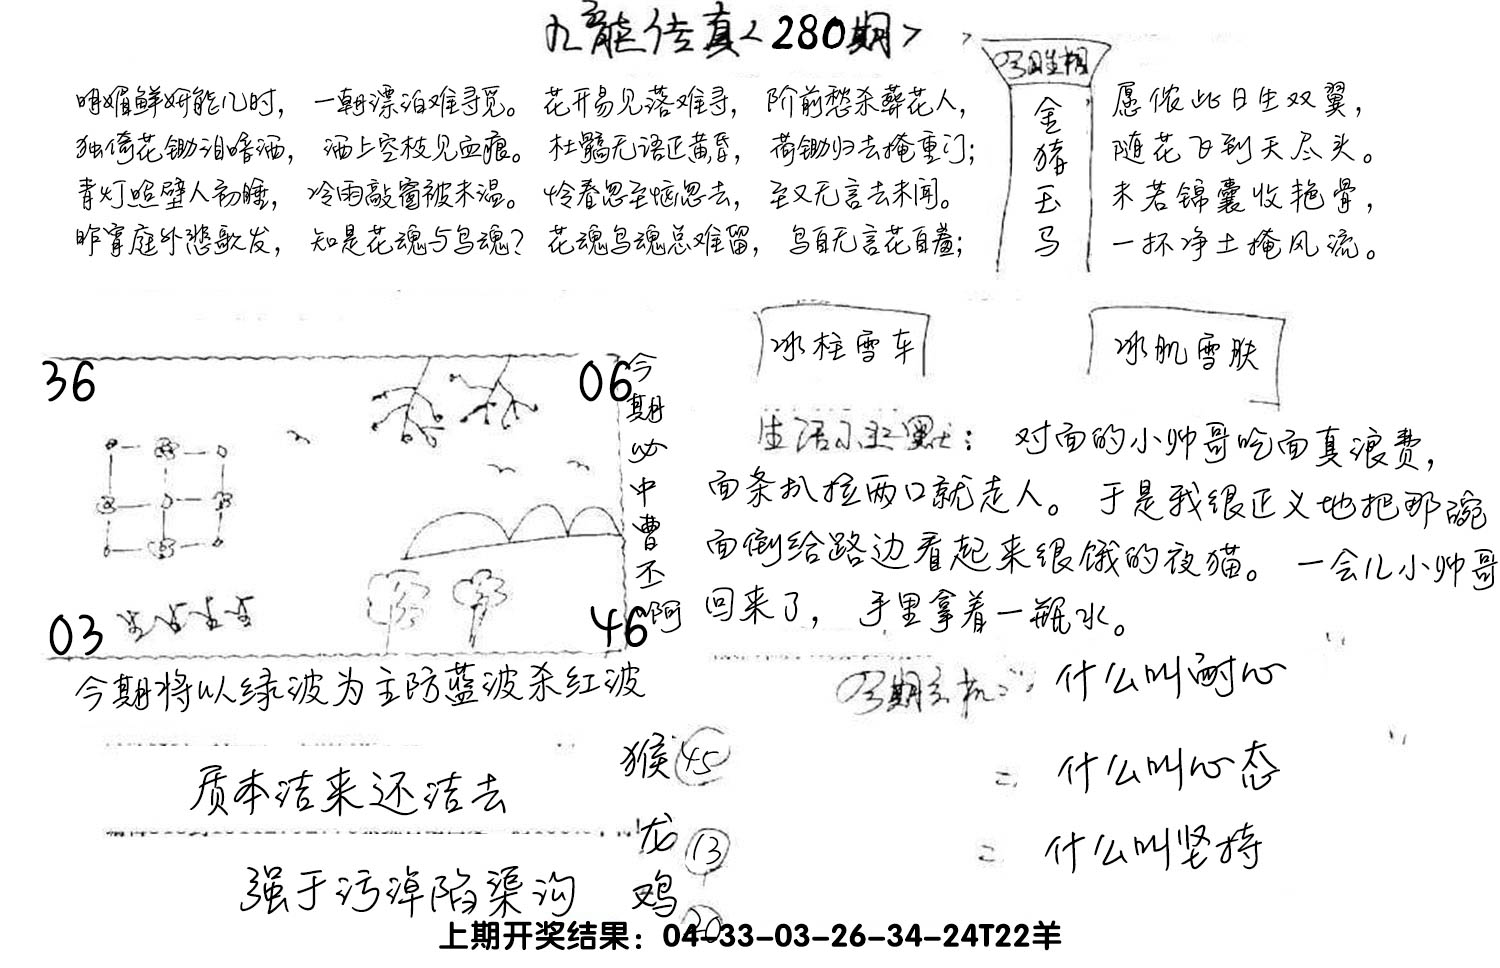 九龙传真<280期>
明媚鲜妍能几时，一朝漂泊难寻觅。花开易见落难寻，阶前愁杀葬花人，
独倚花锄泪暗洒，洒上空枝见血痕。杜鹃无语正黄昏，荷锄归去掩重门；
青灯照壁人初睡，冷雨敲窗被未温。怜春忽至恼忽去，至又无言去未闻。
昨宵庭外悲歌发，知是花魂与鸟魂？花魂鸟魂总难留，鸟自无言花自羞；
今日生相
金猪玉马
愿侬此日生双翼，
随花飞到天尽头。
未若锦囊收艳骨，
一抔净土掩风流。
36
06
03
46
今期必中曹丕啊
今期将以绿波为主防蓝波杀红波
冰柱雪车
冰肌雪肤
生活小幽默：对面的小帅哥吃面真浪费，
面条扒拉两口就走人。于是我很正义地把那碗
面倒给路边看起来很饿的夜猫。一会儿小帅哥
回来了，手里拿着一瓶水。
今期玄机：什么叫耐心
二 什么叫心态
二 什么叫坚持
质本洁来还洁去
强于污淖陷渠沟
猴 45
龙 13
鸡 20
上期开奖结果：04-33-03-26-34-24T22羊